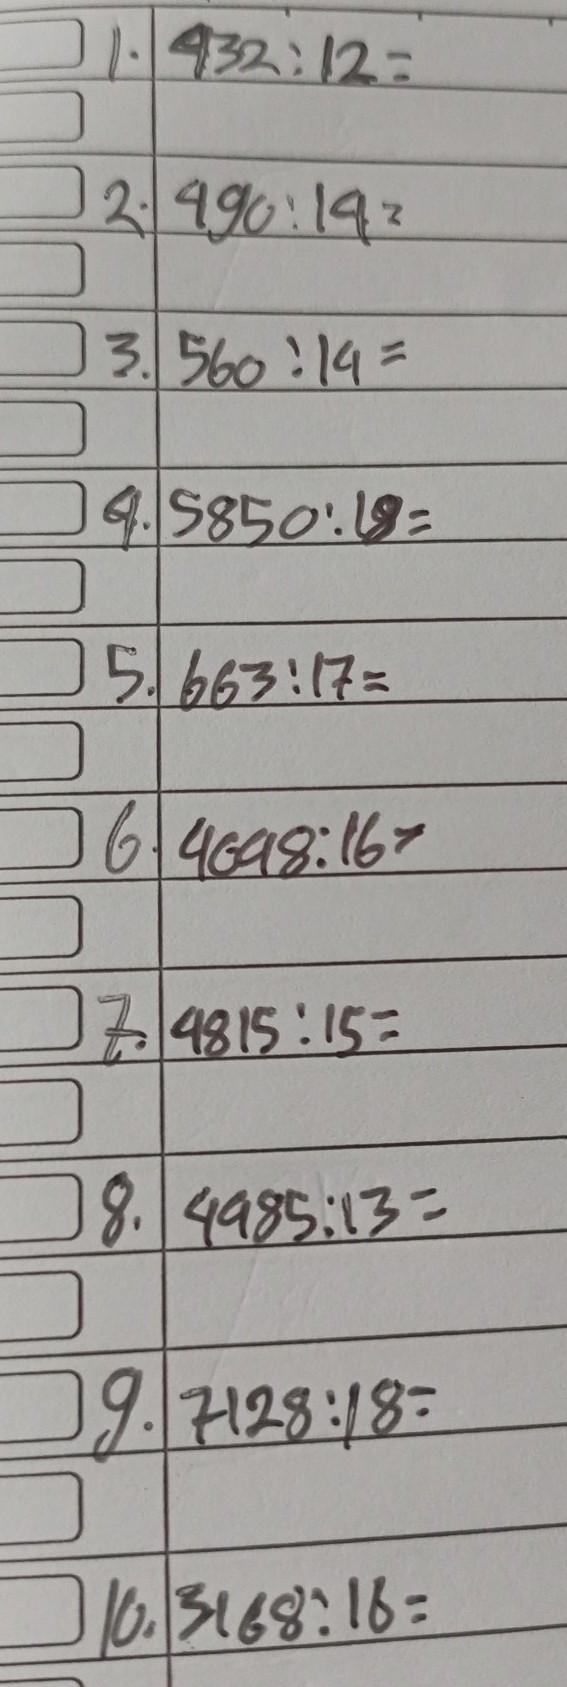 1. 432:12=
2. 490:14=
3. 560:14=
4. 5850:18=
5. 663:17=
6. 4048:16=
7. 4815:15=
8. 4485:13=
9. 7128:18=
10. 3168:16=